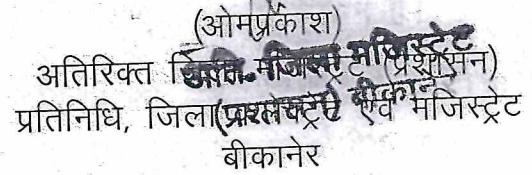 (ओमप्रकाश)
अतिरिक्त जिला मजिस्ट्रेट (प्रशासन)
प्रतिनिधि, जिला कलेक्ट्रेट एवं मजिस्ट्रेट
बीकानेर